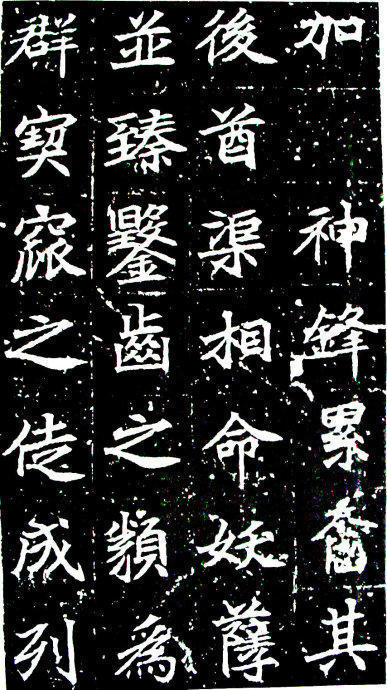 加 神鋒累奮其
後酋渠相命妖孽
並臻鑿齒之類爲
群窫窳之徒成列